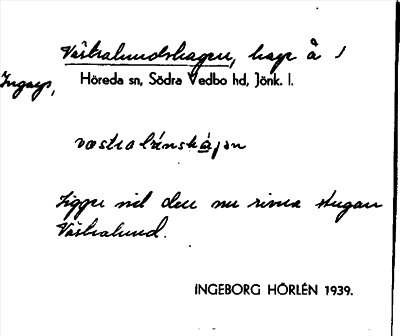 Västralundshagen, hage å
Ingarps, Höreda sn, Södra Vedbo hd, Jönk. l.
Ligger vid den nu rivna stugan
Västralund.
INGEBORG HÖRLÉN 1939.